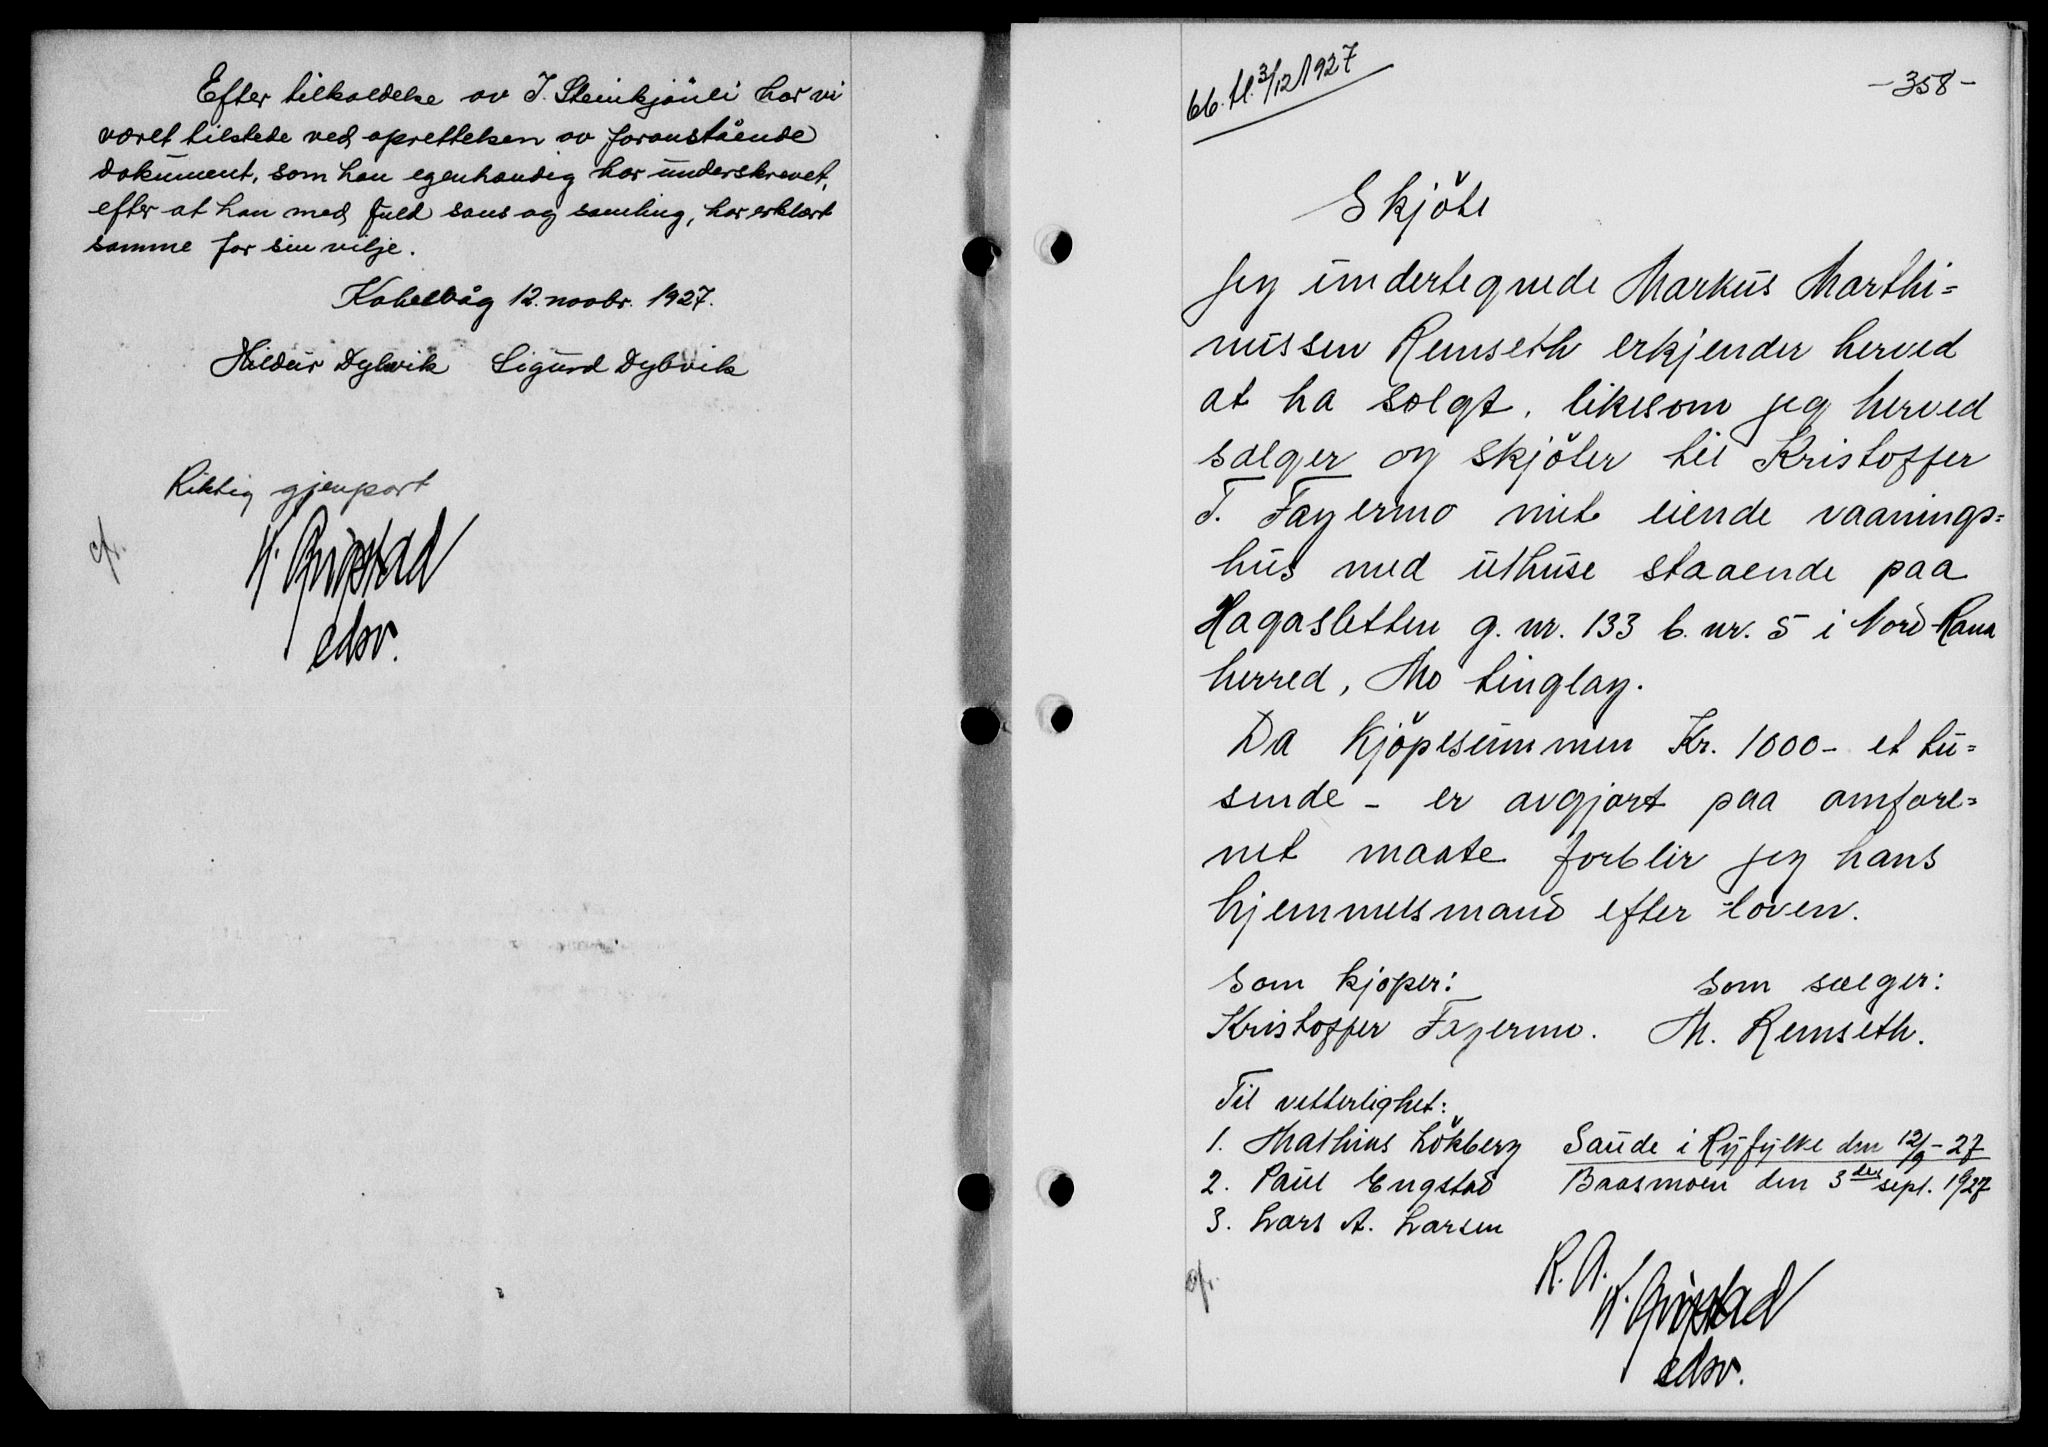 Efter tilkaldelse av J. Steinkjönli har vi
været tilstede ved oprettelsen av foranstående
dokument, som han egenhændig har underskrevet,
efter at han med fuld sans og samling, har erklært
samme for sin vilje.
Kabelvåg 12. novbr. 1927.
Hildur Dybvik Sigurd Dybvik
Riktig gjenpart
edsv.
bb. tl. 3/12 1927
-358-
Skjöte
Jeg undertegnede Markus Marthi=
nussen Remseth erkjender herved
at ha solgt, likesom jeg herved
sælger og skjöter til Kristoffer
T. Fagermo mit eiende vaanings=
hus med uthuse staaende paa
Hagasletten g. nr. 133 b. nr. 5 i Nord-Rana
herred, Mo tinglag.
Da kjöpesummen Kr. 1000- et tu=
sende - er avgjort paa omfore=
net maate forblir jeg hans
hjemmelsmand efter loven.
Som kjøper: Som sælger:
Kristoffer Fagermo. M. Remseth.
Til vitterlighet:
1. Mathius Lökberg Saude i Ryfylke den 12/9-27
2. Paul Engstad Baasmoen den 3 die sept. 1927
3. Lars A. Larsen
R. A.
edsv.